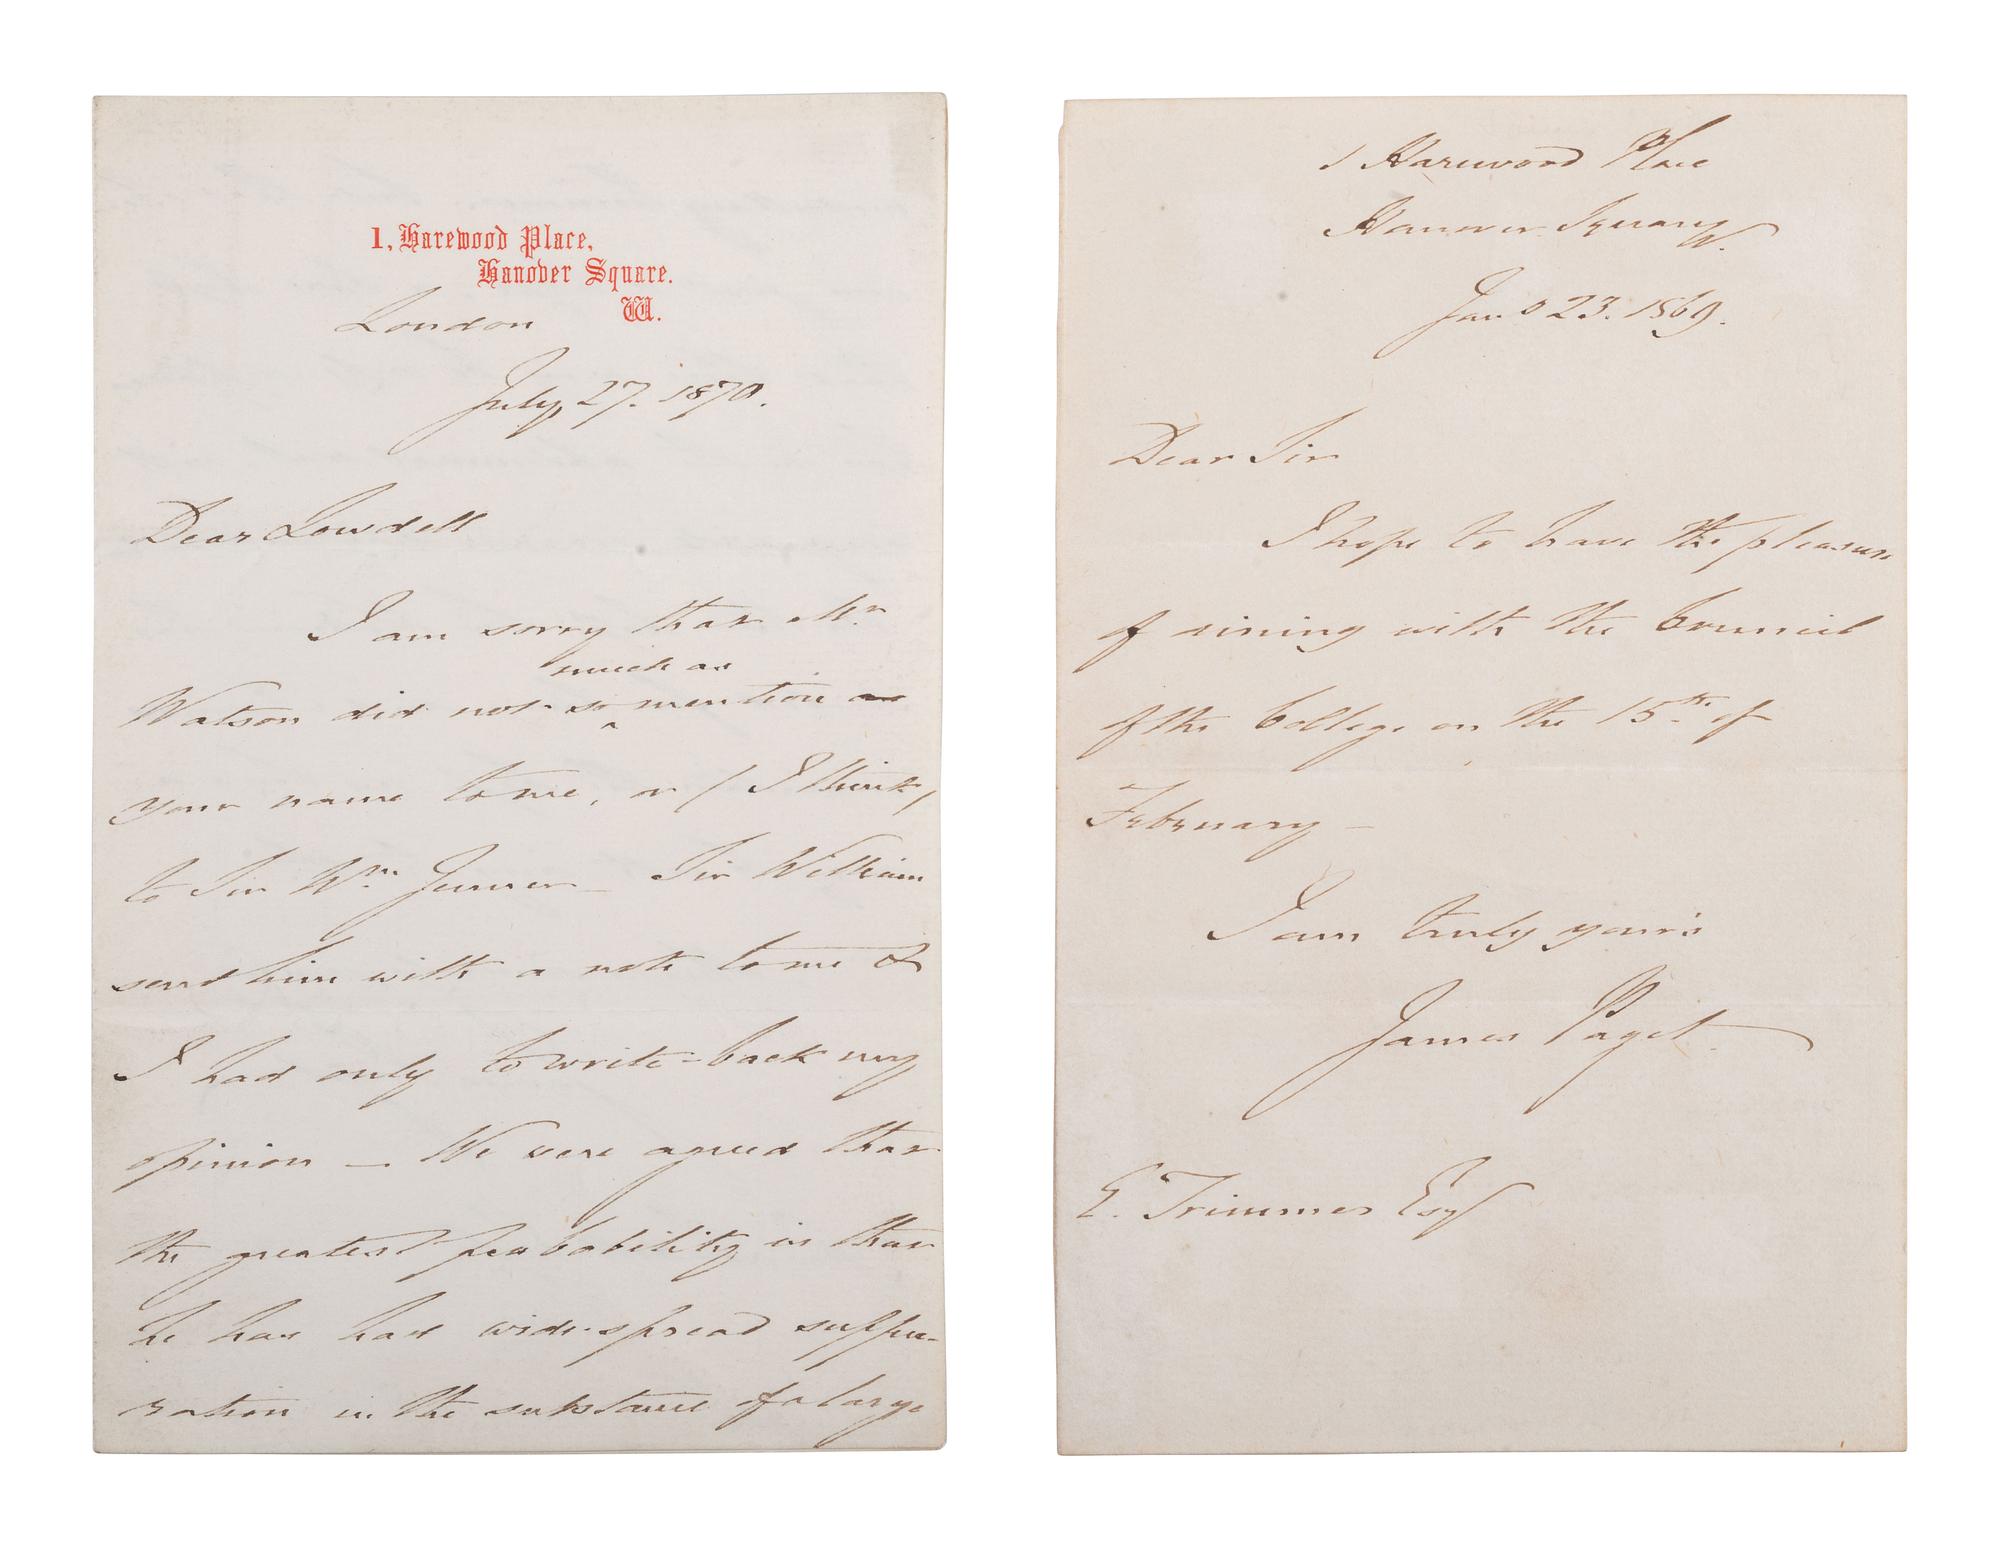 1, Harewood Place,
Hanover Square.
W.
London
July 27. 1870.
Dear Lowdell
I am sorry that Mr
much as
Watson did not so mention as
your name to me, or (I think)
to Sir Wm Jenner – Sir William
send him with a note to me &
I had only to write-back my
opinion – We were agreed that
the greatest probability is that
he has had wide-spread suppu-
ration in the substance of a large
1 Harewood Place
Hanover Square W.
Jan 23. 1869.
Dear Sir
I hope to have the pleasure
of dining with the Council
of the College on the 15th of
February –
I am truly yours
James Paget
E. Trimmer Esq